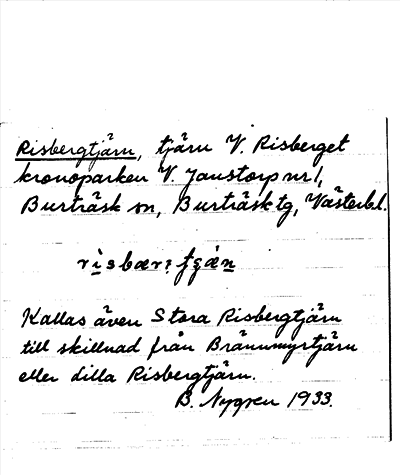 Risbergtjärn, tjärn V. Risberget
kronoparken V. Janstorp nr 1,
Burträsk sn, Burträsk tg, Västerbl.
Kallas även Stora Risbergtjärn
till skillnad från Brännmyrtjärn
eller Lilla Risbergtjärn.
B. Nygren 1933.